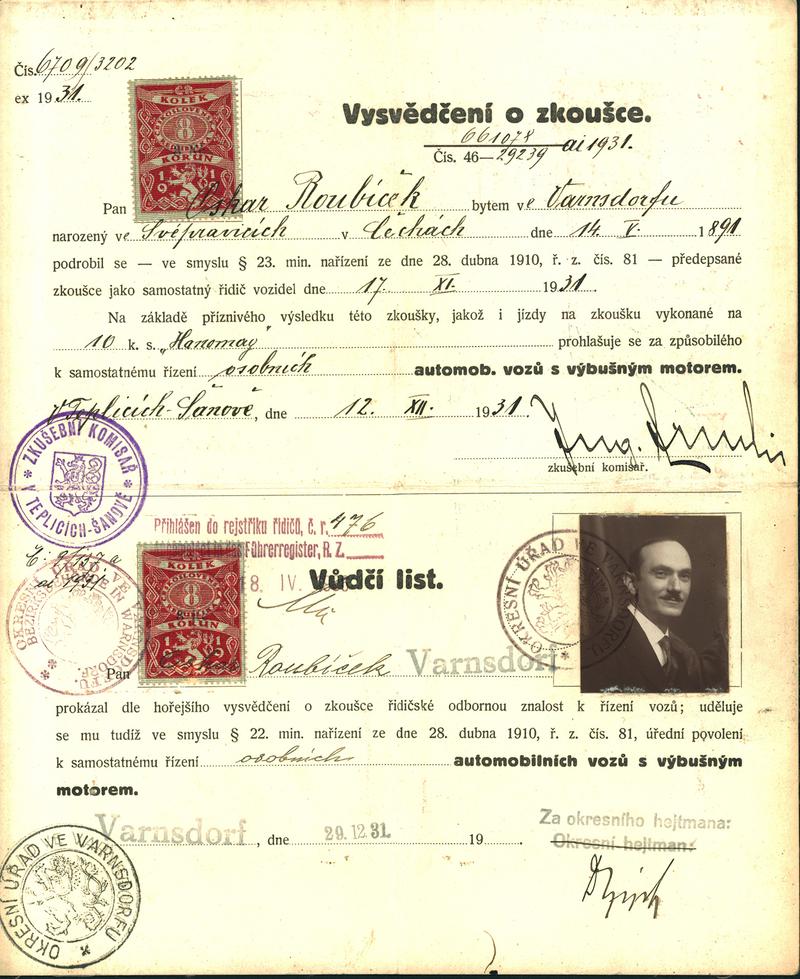 Čís. 6709/3202
ex 1931.
KOLEK
8
KORUN
1919
Vysvědčení o zkoušce.
661078
Čís. 46—29239 ai 1931.
Pan Oskar Roubíček bytem ve Varnsdorfu
narozený ve Svépravicích v Čechách dne 14. V. 1891
podrobil se — ve smyslu § 23. min. nařízení ze dne 28. dubna 1910, ř. z. čís. 81 — předepsané
zkoušce jako samostatný řidič vozidel dne 17. XI. 1931.
Na základě příznivého výsledku této zkoušky, jakož i jízdy na zkoušku vykonané na
10 k. s. „Hanomag" prohlašuje se za způsobilého
k samostatnému řízení osobních automob. vozů s výbušným motorem.
V Teplicích-Šanově, dne 12. XII. 1931.
zkušební komisař.
ZKUŠEBNÍ KOMISAŘ V TEPLICÍCH-ŠANOVĚ
Přihlášen do rejstříku řidičů, č. r. 476
Führerregister, R. Z.
8. IV.
KOLEK
8
KORUN
Vůdčí list.
OKRESNÍ ÚŘAD VE VARNSDORFU
Pan Oskar Roubíček Varnsdorf
prokázal dle hořejšího vysvědčení o zkoušce řidičské odbornou znalost k řízení vozů; uděluje
se mu tudíž ve smyslu § 22. min. nařízení ze dne 28. dubna 1910, ř. z. čís. 81, úřední povolení
k samostatnému řízení osobních automobilních vozů s výbušným
motorem.
Varnsdorf, dne 29.12.31. 19
Za okresního hejtmana:
Okresní hejtman:
OKRESNÍ ÚŘAD VE VARNSDORFU